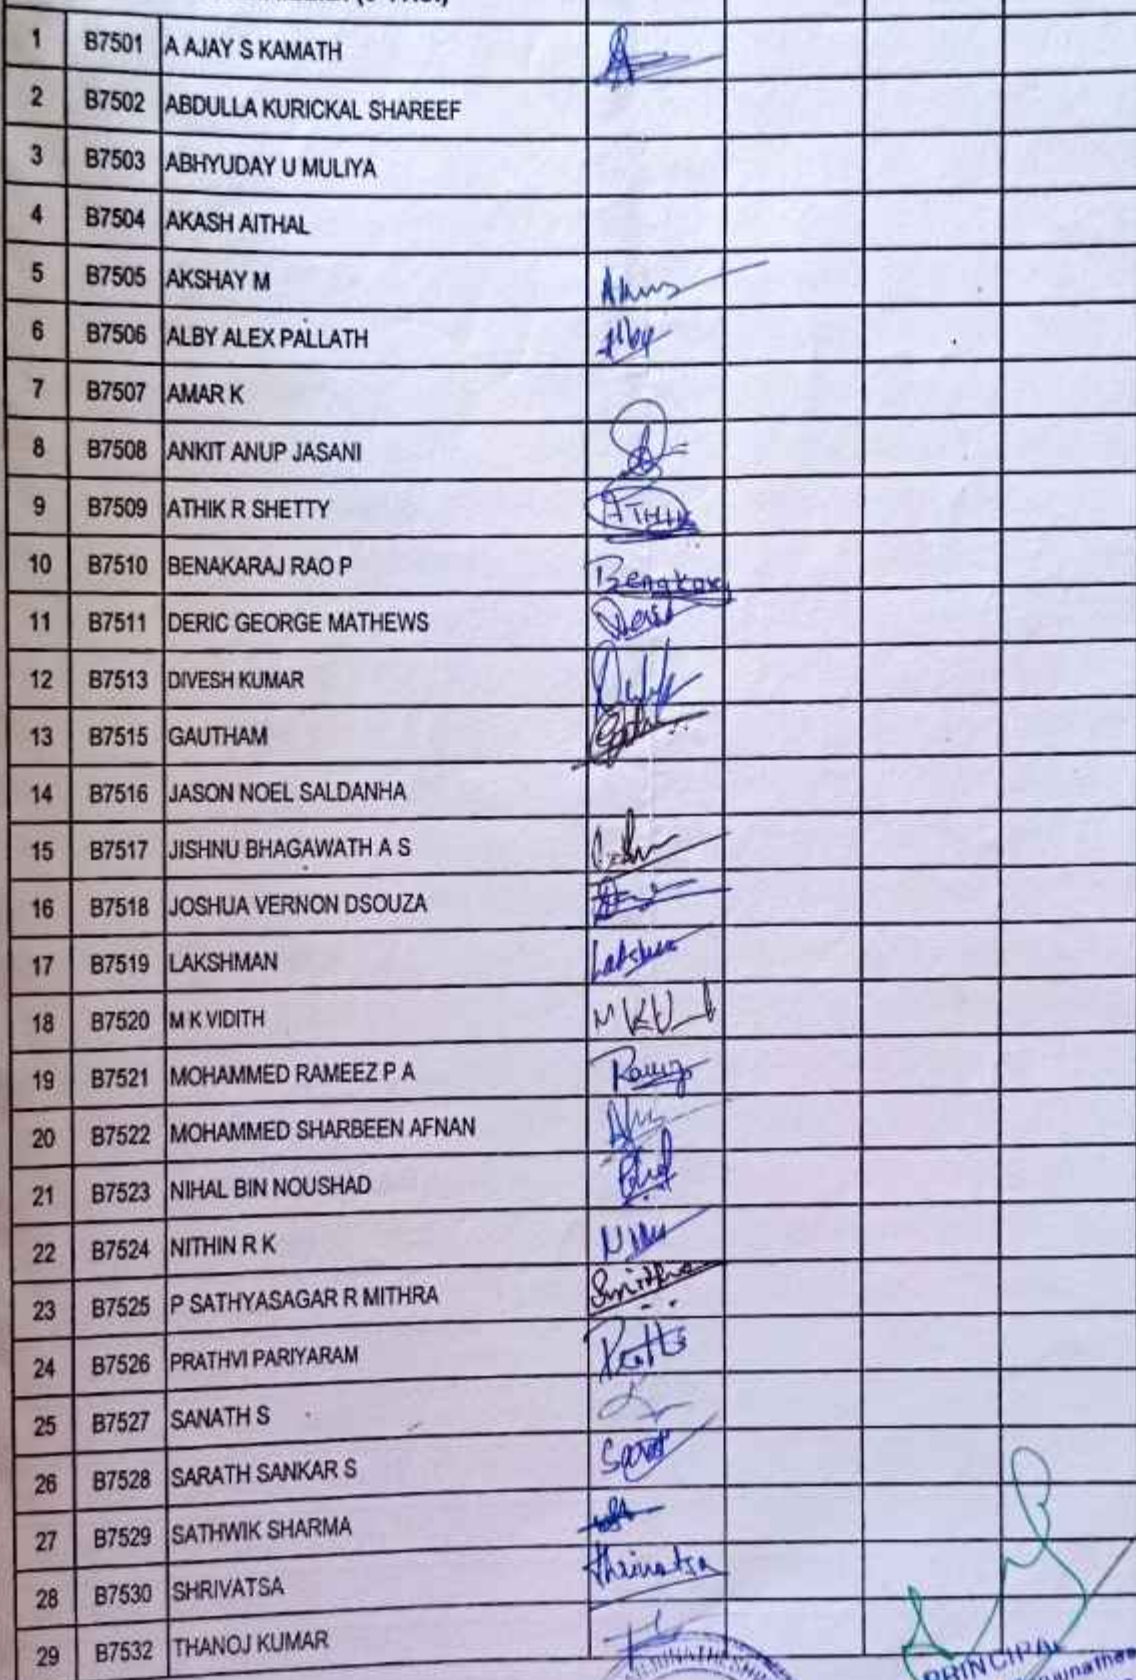 1 B7501 A AJAY S KAMATH
2 B7502 ABDULLA KURICKAL SHAREEF
3 B7503 ABHYUDAY U MULIYA
4 B7504 AKASH AITHAL
5 B7505 AKSHAY M
6 B7506 ALBY ALEX PALLATH Alby
7 B7507 AMAR K
8 B7508 ANKIT ANUP JASANI
9 B7509 ATHIK R SHETTY ATHIK
10 B7510 BENAKARAJ RAO P
11 B7511 DERIC GEORGE MATHEWS Deric
12 B7513 DIVESH KUMAR
13 B7515 GAUTHAM
14 B7516 JASON NOEL SALDANHA
15 B7517 JISHNU BHAGAWATH A S
16 B7518 JOSHUA VERNON DSOUZA
17 B7519 LAKSHMAN
18 B7520 M K VIDITH
19 B7521 MOHAMMED RAMEEZ P A
20 B7522 MOHAMMED SHARBEEN AFNAN
21 B7523 NIHAL BIN NOUSHAD
22 B7524 NITHIN R K
23 B7525 P SATHYASAGAR R MITHRA
24 B7526 PRATHVI PARIYARAM
25 B7527 SANATH S
26 B7528 SARATH SANKAR S
27 B7529 SATHWIK SHARMA
28 B7530 SHRIVATSA
29 B7532 THANOJ KUMAR
PRINCIPAL